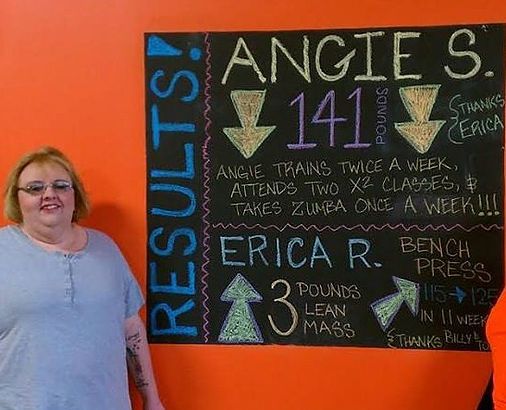 RESULTS!
ANGIE S.
141 POUNDS
THANKS
ERICA
ANGIE TRAINS TWICE A WEEK,
ATTENDS TWO X2 CLASSES, &
TAKES ZUMBA ONCE A WEEK!!!
ERICA R.
3 POUNDS
LEAN
MASS
BENCH
PRESS
115→125
IN 11 WEEK
THANKS BILLY &
TO